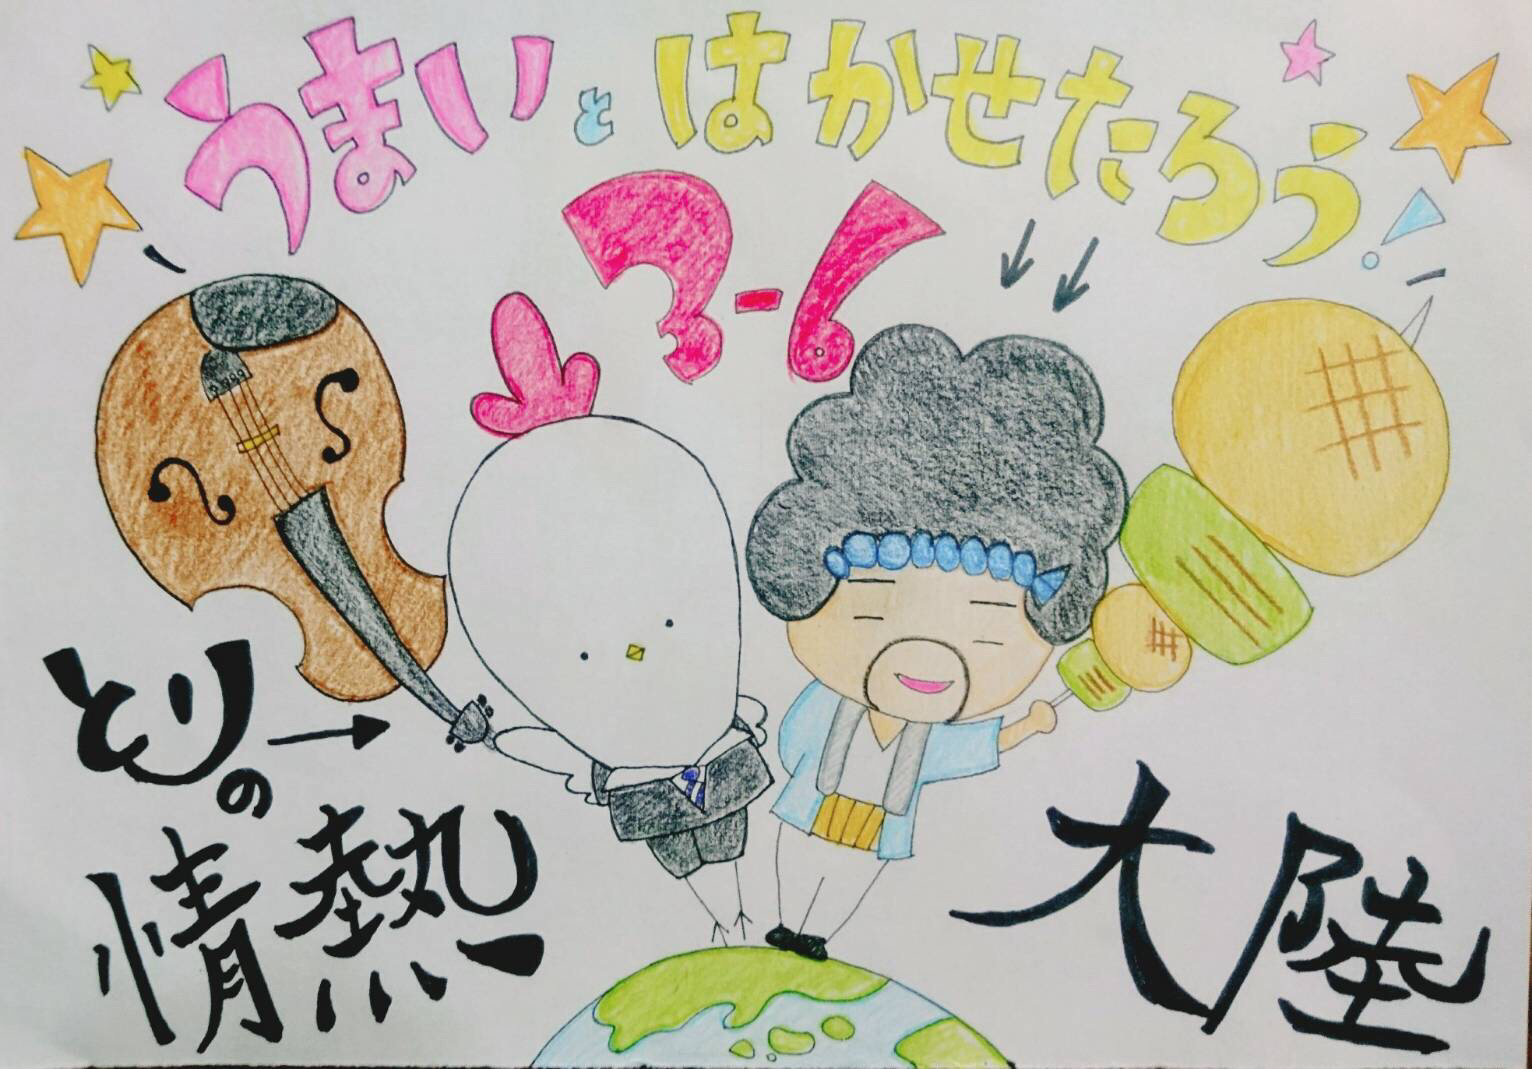 うまいとはかせたろう!
3-6
とりの
情熱
大陸